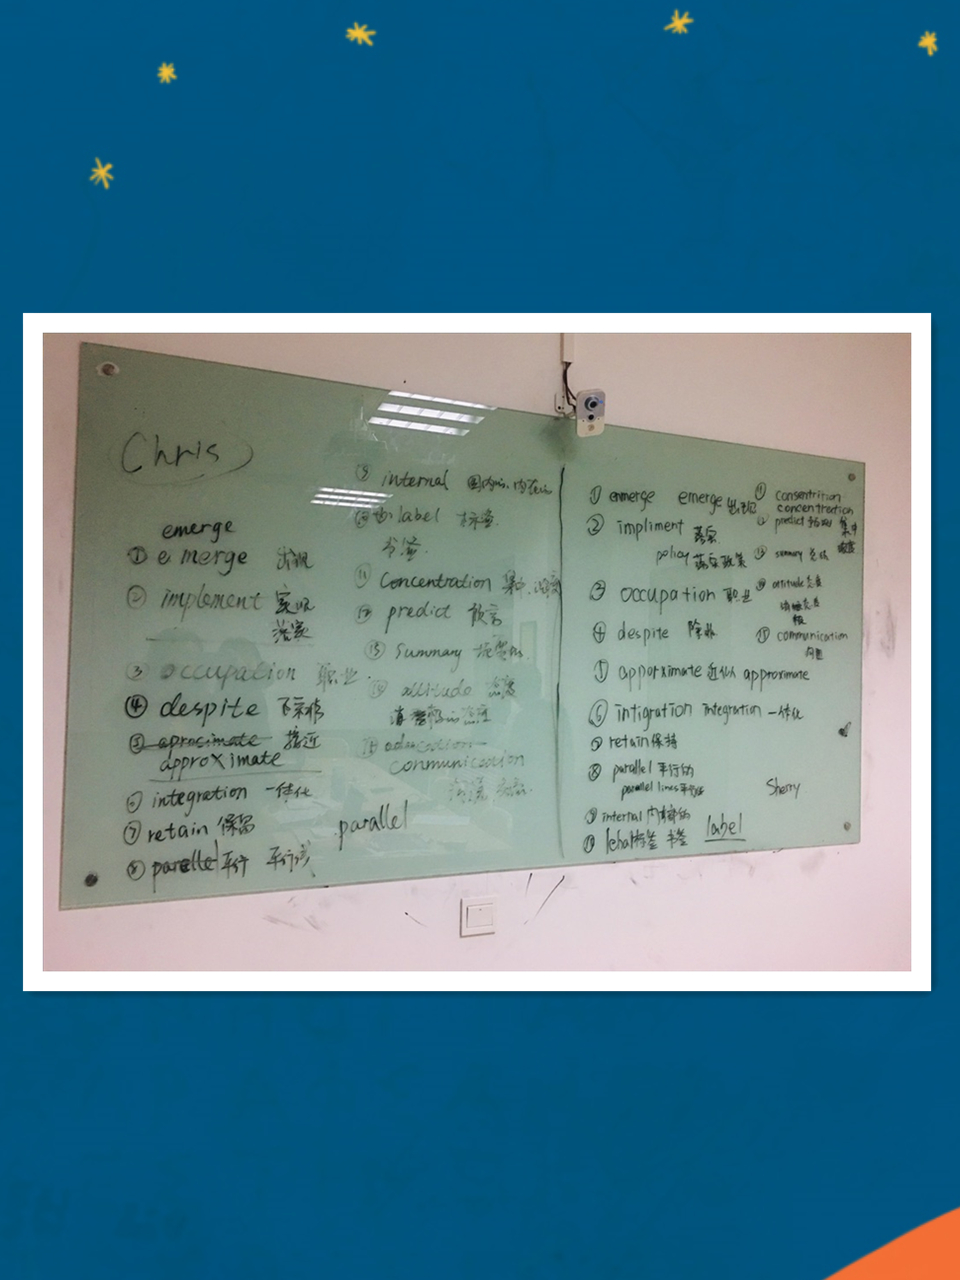 Chris
emerge
① emerge 出现
② implement 实现
落实
③ occupation 职业
④ despite 不管
⑤ aprocimate 接近
approximate
⑥ integration 一体化
⑦ retain 保留
⑧ parallel 平行 平行线
parallel
⑨ internal 国内的、内在的
⑩ label 标签
书签
⑪ concentration 集中
⑫ predict 预言
⑬ summary
⑭ attitude 态度
communication
① enmerge emerge 出现
② impliment 落实
policy 落实政策
③ occupation 职业
④ despite 除非
⑤ apporximate 近似 approximate
⑥ intigration integration 一体化
⑦ retain 保持
⑧ parallel 平行的
parallel lines 平行线
⑨ internal 内部的
⑩ lehal 标签 书签 label
⑪ consentrition
concentration
⑫ predict 预测 集中
⑬ summary 总结
⑭ attitude 态度
⑮ communication
沟通
Sherry